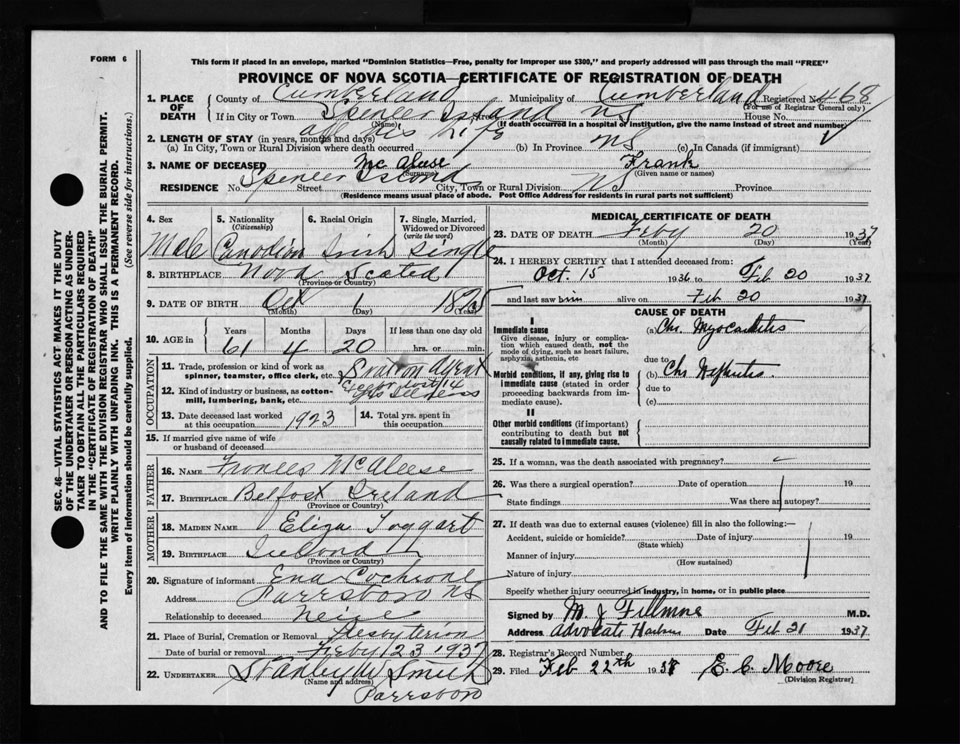 FORM 6
This form if placed in an envelope, marked "Dominion Statistics—Free, penalty for improper use $300," and properly addressed will pass through the mail "FREE"
PROVINCE OF NOVA SCOTIA—CERTIFICATE OF REGISTRATION OF DEATH
1. PLACE OF DEATH
County of Cumberland Municipality of Cumberland Registered No. 468
(For use of Registrar General only)
If in City or Town Spencer Island NS House No.
(Name) (If death occurred in a hospital or institution, give the name instead of street and number)
2. LENGTH OF STAY (in years, months and days) all his life
(a) In City, Town or Rural Division where death occurred (b) In Province NS (c) In Canada (if immigrant)
3. NAME OF DECEASED Mc Aleese Frank
(Surname) (Given name or names)
RESIDENCE No. Spencer Island Street City, Town or Rural Division NS Province
(Residence means usual place of abode. Post Office Address for residents in rural parts not sufficient)
4. Sex 5. Nationality (Citizenship) 6. Racial Origin 7. Single, Married, Widowed or Divorced (write the word)
Male Canadian Irish Single
8. BIRTHPLACE Nova Scotia
(Province or Country)
9. DATE OF BIRTH Oct 1 1875
(Month) (Day) (Year)
10. AGE in Years Months Days If less than one day old
61 4 20 hrs. or min.
OCCUPATION
11. Trade, profession or kind of work as spinner, teamster, office clerk, etc. Station Agent
12. Kind of industry or business, as cotton-mill, lumbering, bank, etc.
13. Date deceased last worked at this occupation 1923
14. Total yrs. spent in this occupation
15. If married give name of wife or husband of deceased
FATHER
16. NAME Frances McAleese
17. BIRTHPLACE Belfast Ireland
(Province or Country)
MOTHER
18. MAIDEN NAME Eliza Taggart
19. BIRTHPLACE Ireland
(Province or Country)
20. Signature of informant Ena Cochrane
Address Parrsboro NS
Relationship to deceased Neice
21. Place of Burial, Cremation or Removal Presbyterian
Date of burial or removal Feby 23 1937
22. UNDERTAKER Stanley W Smith
(Name and address)
Parrsboro
MEDICAL CERTIFICATE OF DEATH
23. DATE OF DEATH Feby 20 1937
(Month) (Day) (Year)
24. I HEREBY CERTIFY that I attended deceased from:
Oct. 15 1936 to Feb 20 1937
and last saw him alive on Feb 20 1937
CAUSE OF DEATH
I
Immediate cause
Give disease, injury or complication which caused death, not the mode of dying, such as heart failure, asphyxia, asthenia, etc
(a) Chr. Myocarditis
due to
Morbid conditions, if any, giving rise to immediate cause (stated in order proceeding backwards from immediate cause).
(b) Chr Nephritis.
due to
(c)
II
Other morbid conditions (if important) contributing to death but not causally related to immediate cause.
25. If a woman, was the death associated with pregnancy?
26. Was there a surgical operation? Date of operation 19
State findings Was there an autopsy?
27. If death was due to external causes (violence) fill in also the following:—
Accident, suicide or homicide? Date of injury 19
(State which)
Manner of injury
(How sustained)
Nature of injury
Specify whether injury occurred in industry, in home, or in public place
Signed by M. J. Fillmore M.D.
Address Advocate Harbour Date Feb 21 1937
28. Registrar's Record Number
29. Filed Feb 22th 1937 E. C. Moore
(Division Registrar)
SEC. 46—VITAL STATISTICS ACT MAKES IT THE DUTY
OF THE UNDERTAKER OR PERSON ACTING AS UNDER-
TAKER TO OBTAIN ALL THE PARTICULARS REQUIRED
IN THE "CERTIFICATE OF REGISTRATION OF DEATH"
AND TO FILE THE SAME WITH THE DIVISION REGISTRAR WHO SHALL ISSUE THE BURIAL PERMIT.
WRITE PLAINLY WITH UNFADING INK. THIS IS A PERMANENT RECORD.
Every item of information should be carefully supplied. (See reverse side for instructions.)